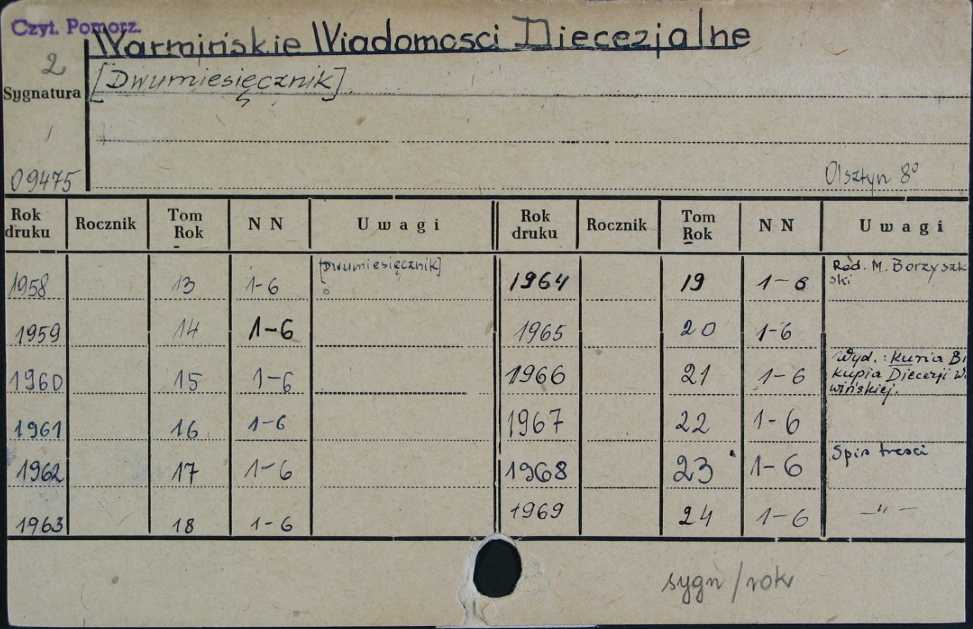 Czyt. Pomorz.
Warmińskie Wiadomosci Diecezjalne
2
[Dwumiesięcznik]
Sygnatura
09475
Olsztyn 8°
Rok druku Rocznik Tom Rok N N Uwagi Rok druku Rocznik Tom Rok N N Uwagi
1958 13 1-6 [Dwumiesięcznik] 1964 19 1-6 Red. M. Borzyszkski
1959 14 1-6 1965 20 1-6
1960 15 1-6 1966 21 1-6 Wyd.: Kuria Bikupia Diecezji
wińskiej.
1961 16 1-6 1967 22 1-6
1962 17 1-6 1968 23 1-6 Spis tresci
1963 18 1-6 1969 24 1-6 —"—
sygn/rok